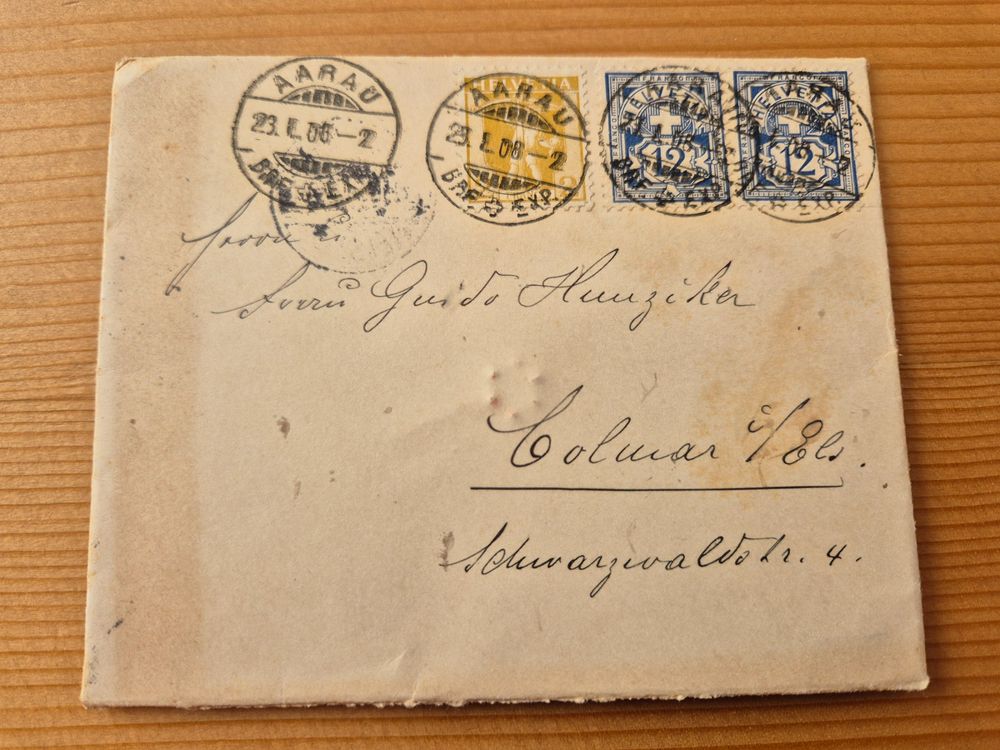 AARAU
23.I.08-2
BRF. EXP.
HELVETIA
2
AARAU
23.I.08-2
BRF. EXP.
FRANCO
HELVETIA
12
FRANCO
HELVETIA
12
Herrn
Herrn Guido Hunziker
Colmar i/Els.
Schwarzwaldstr. 4.